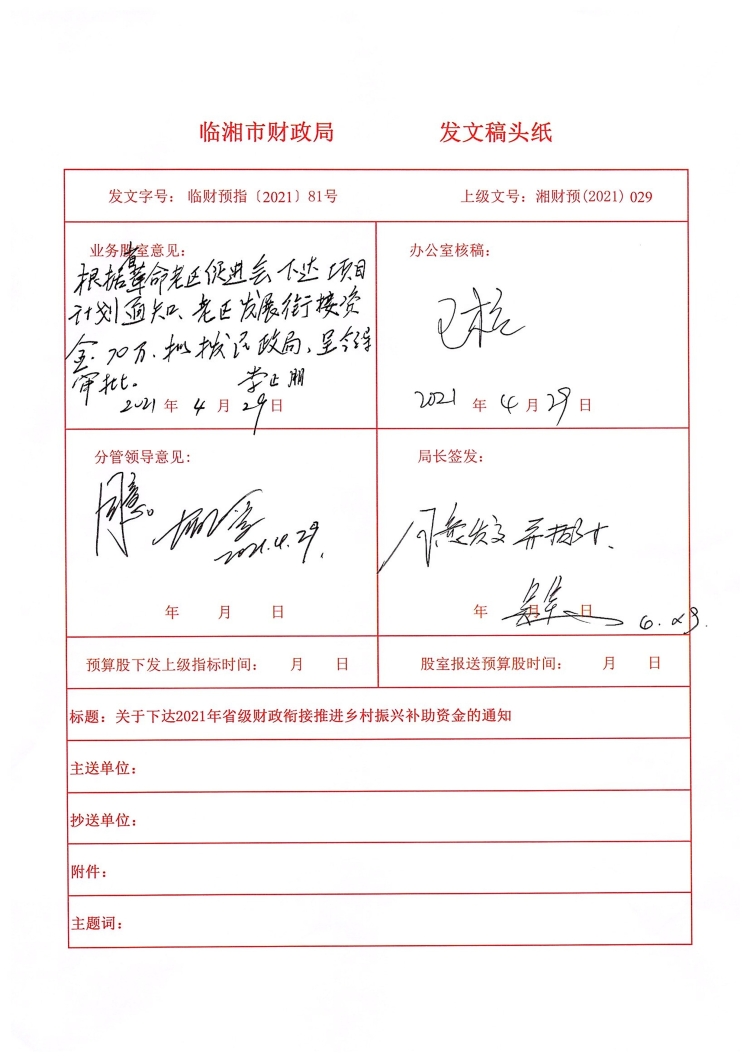 临湘市财政局 发文稿头纸
发文字号： 临财预指〔2021〕81号 上级文号：湘财预(2021) 029
业务股室意见：
根据省革命老区促进会下达项目
计划通知、老区发展衔接资
金70万.拟拨民政局,呈领导
审批。 李正朋
2021 年 4 月 29 日
办公室核稿：
2021 年 4 月 29 日
分管领导意见:
同意。
2021.4.29.
年 月 日
局长签发：
同意发文
年 月 日
预算股下发上级指标时间： 月 日 股室报送预算股时间： 月 日
标题：关于下达2021年省级财政衔接推进乡村振兴补助资金的通知
主送单位：
抄送单位：
附件：
主题词：